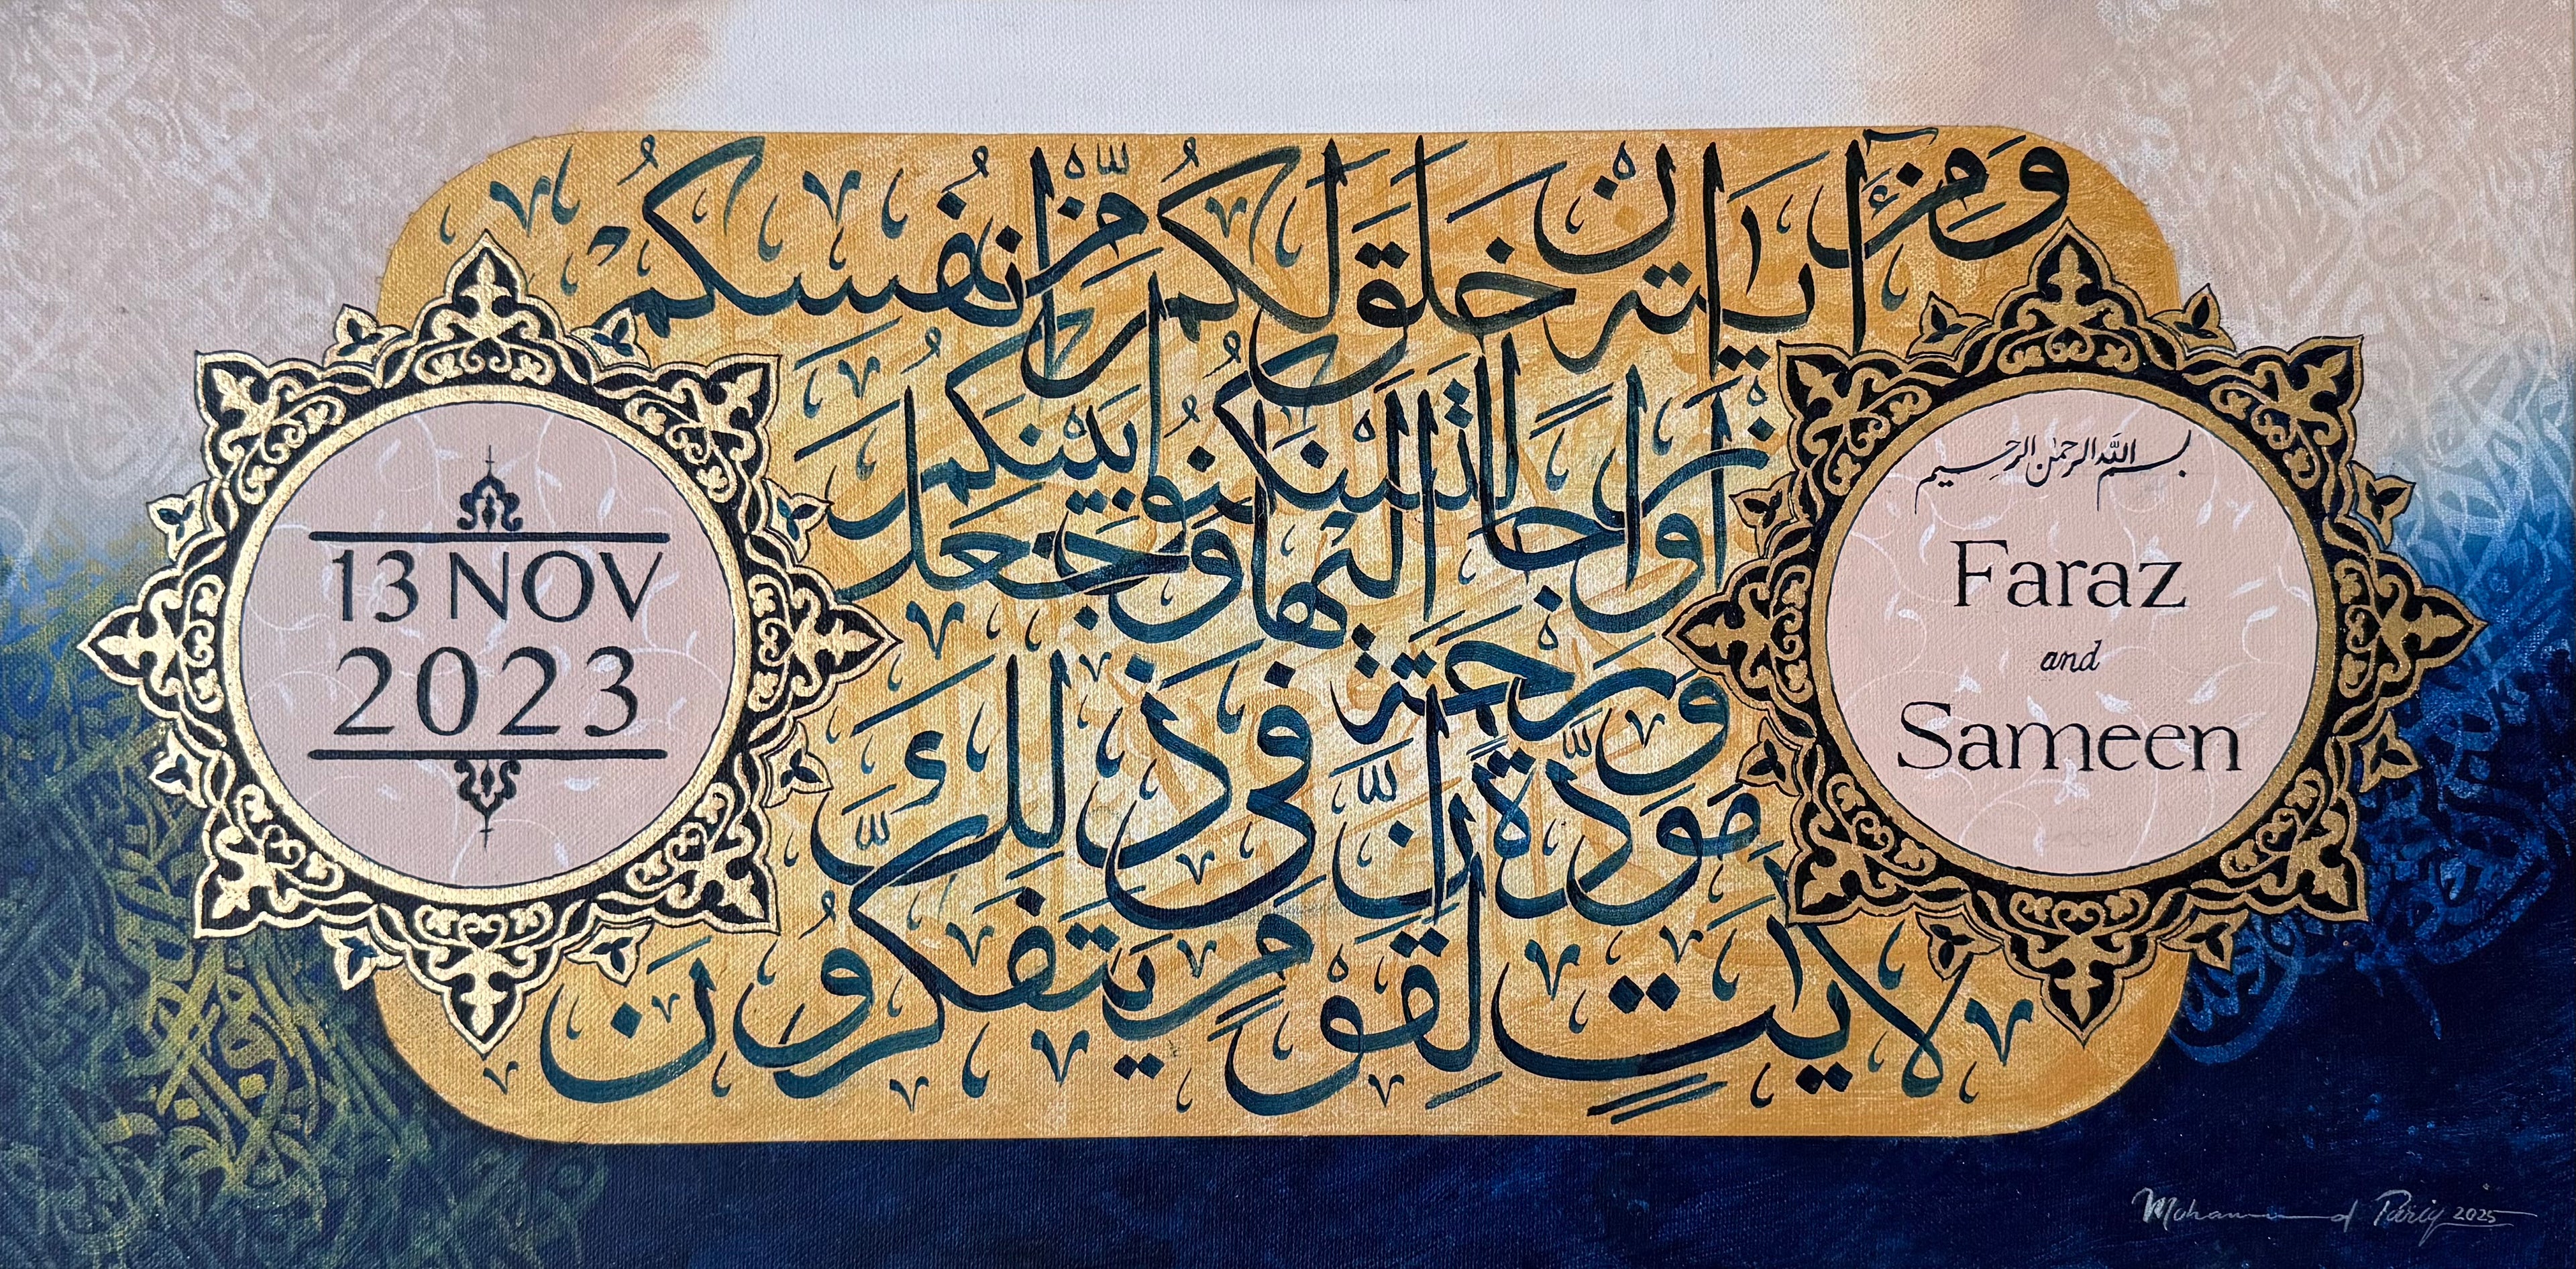 وَمِنْ آيَاتِهِ أَنْ خَلَقَ لَكُمْ مِّنْ اَنْفُسِكُمْ
اَزْوَاجًا لِّتَسْكُنُوْا اِلَيْهَا وَجَعَلَ بَيْنَكُمْ
مَّوَدَّةً وَّرَحْمَةً اِنَّ فِيْ ذٰلِكَ
لَاٰيٰتٍ لِّقَوْمٍ يَّتَفَكَّرُوْنَ
بسم الله الرحمن الرحيم
Faraz
and
Sameen
13 NOV
2023
Mohammad Tariq 2025